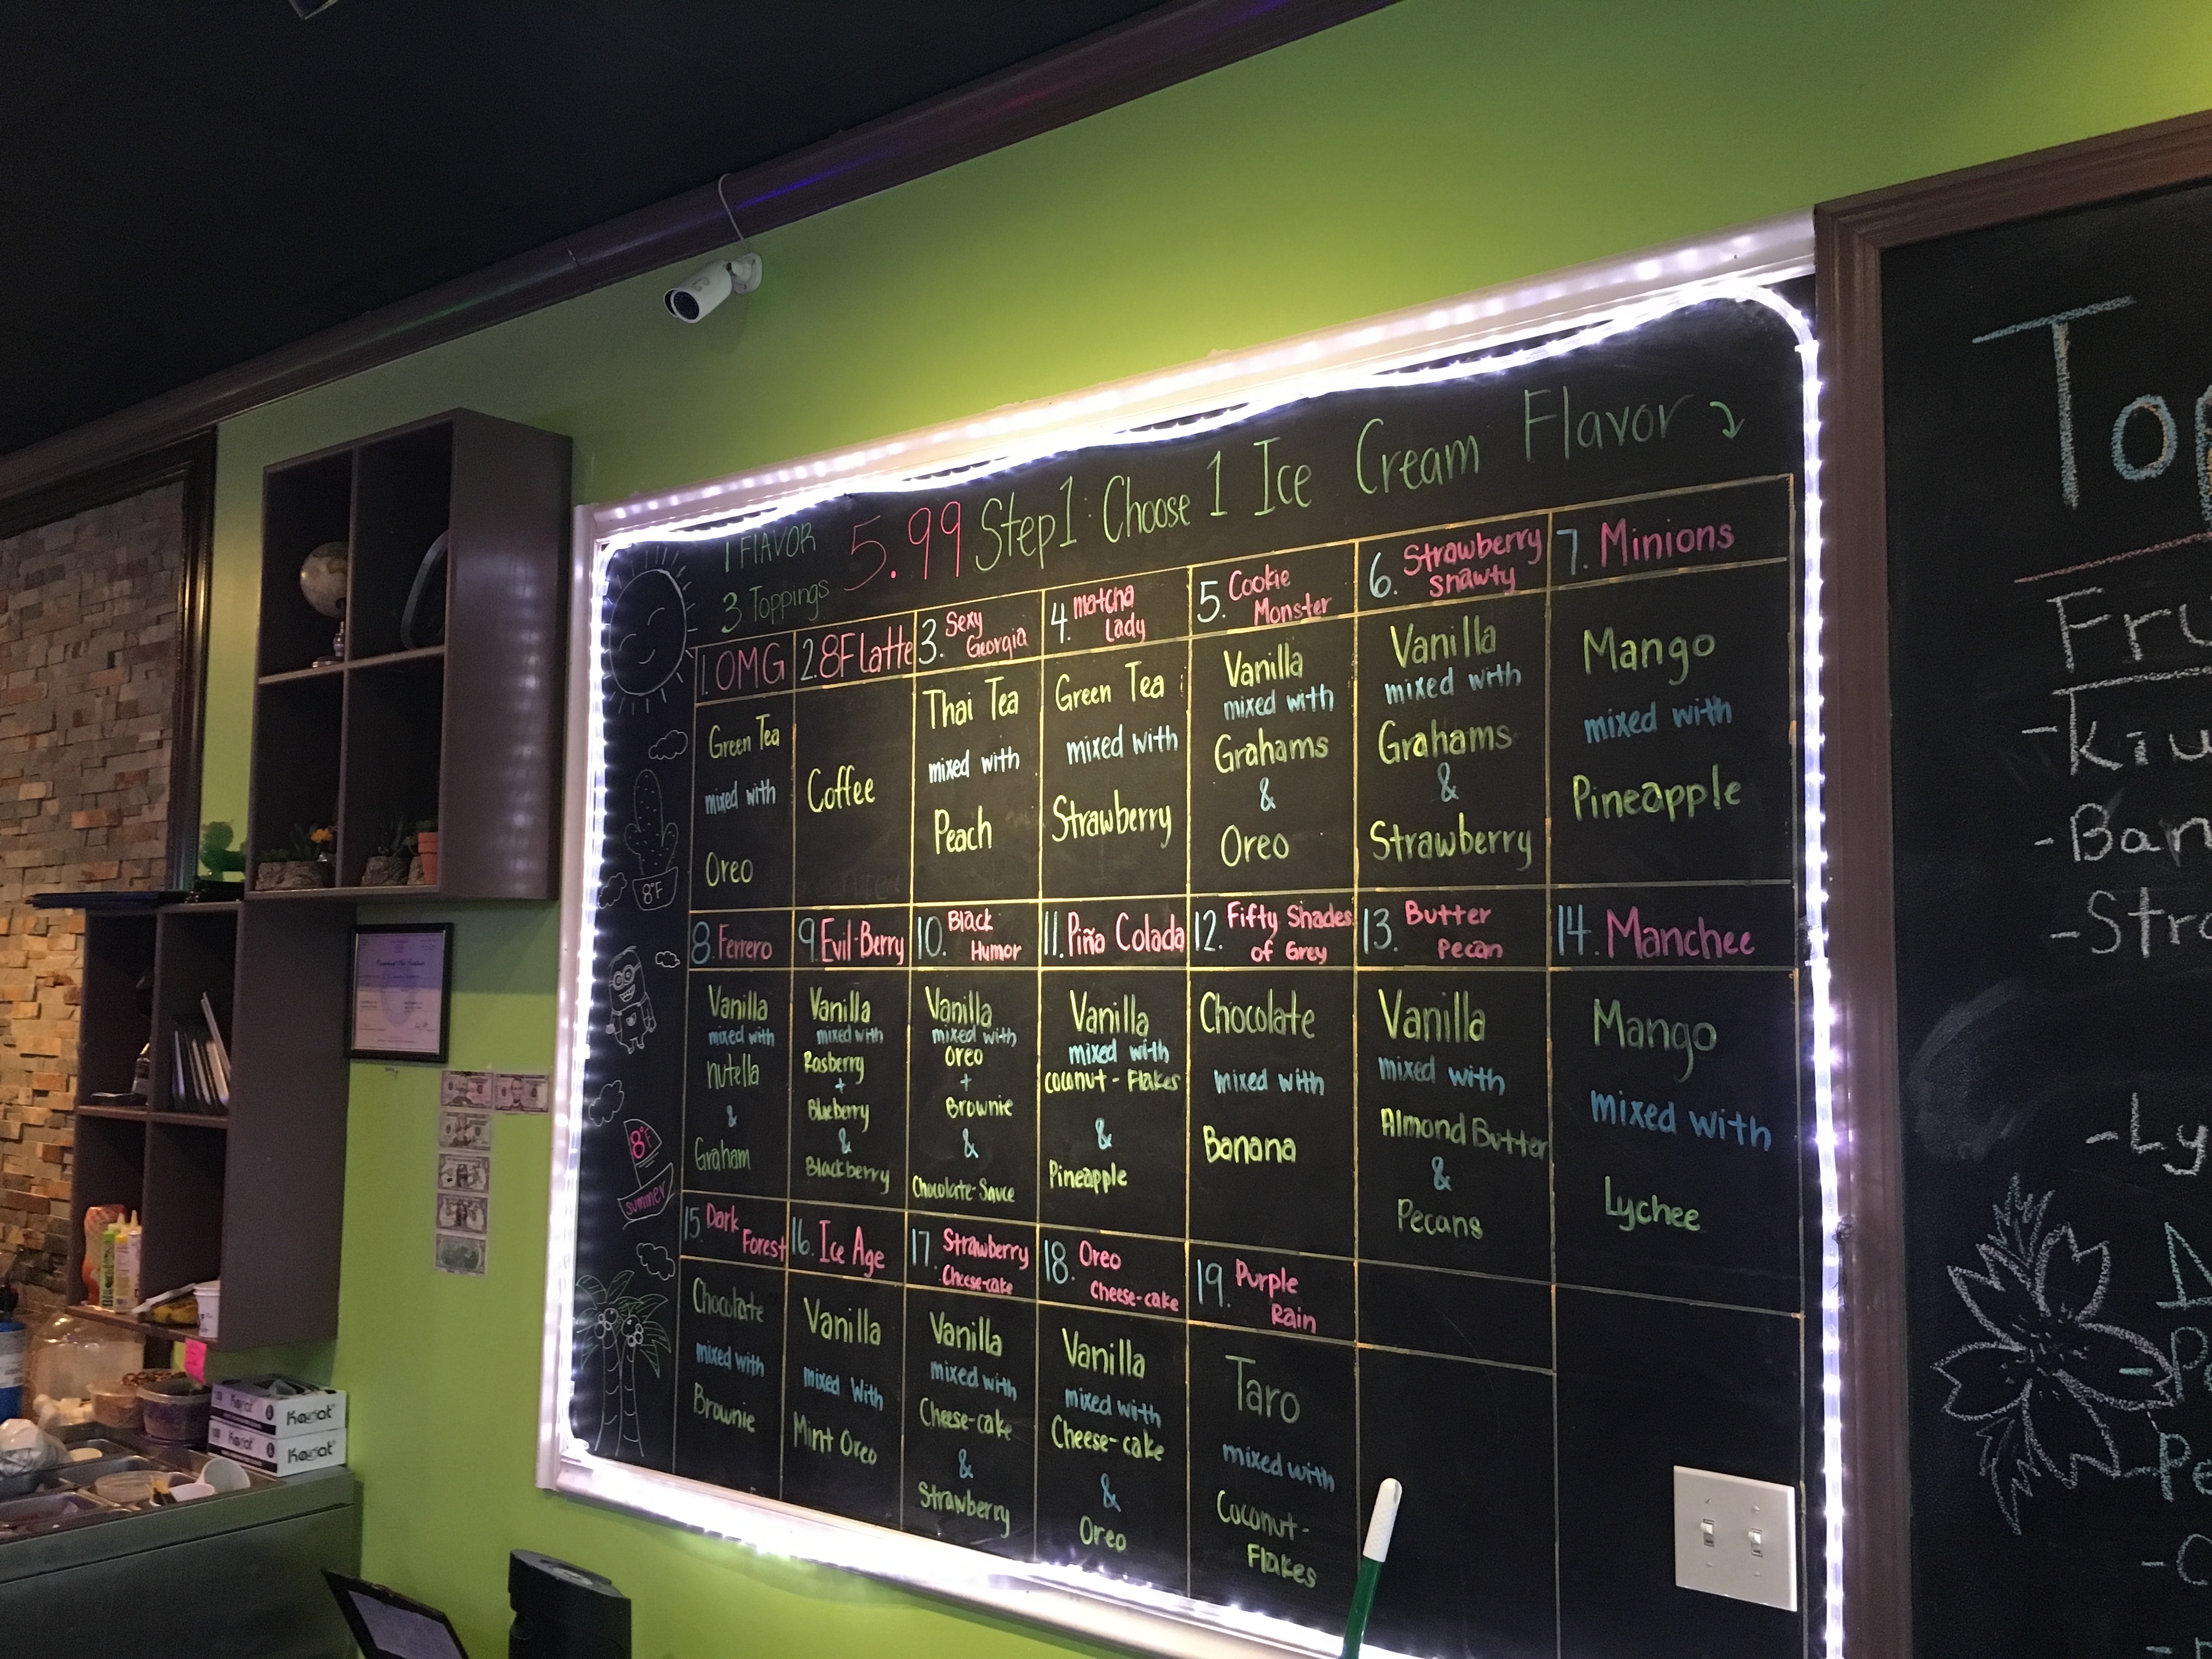 1 FLAVOR
3 Toppings
5.99
Step1: Choose 1 Ice Cream Flavor
1. OMG
Green Tea
mixed with
Oreo
2. 8F latte
Coffee
3. Sexy
Georgia
Thai Tea
mixed with
Peach
4. matcha
Lady
Green Tea
mixed with
Strawberry
5. Cookie
Monster
Vanilla
mixed with
Grahams
&
Oreo
6. Strawberry
Shawty
Vanilla
mixed with
Grahams
&
Strawberry
7. Minions
Mango
mixed with
Pineapple
8. Ferrero
Vanilla
mixed with
nutella
&
Graham
9. Evil-Berry
Vanilla
mixed with
Rasberry
+
Blueberry
&
Blackberry
10. Black
Humor
Vanilla
mixed with
Oreo
+
Brownie
&
Chocolate-Sauce
11. Piña Colada
Vanilla
mixed with
coconut-Flakes
&
Pineapple
12. Fifty Shades
of Grey
Chocolate
mixed with
Banana
13. Butter
Pecan
Vanilla
mixed with
Almond Butter
&
Pecans
14. Manchee
Mango
mixed with
Lychee
15. Dark
Forest
Chocolate
mixed with
Brownie
16. Ice Age
Vanilla
mixed with
Mint Oreo
17. Strawberry
Cheese-cake
Vanilla
mixed with
Cheese-cake
&
Strawberry
18. Oreo
Cheese-cake
Vanilla
mixed with
Cheese-cake
&
Oreo
19. Purple
Rain
Taro
mixed with
Coconut-
Flakes
8°F
8°F
summer
Top
Fru
-Kiw
-Ban
-Stra
-Ly
Karat
Karat